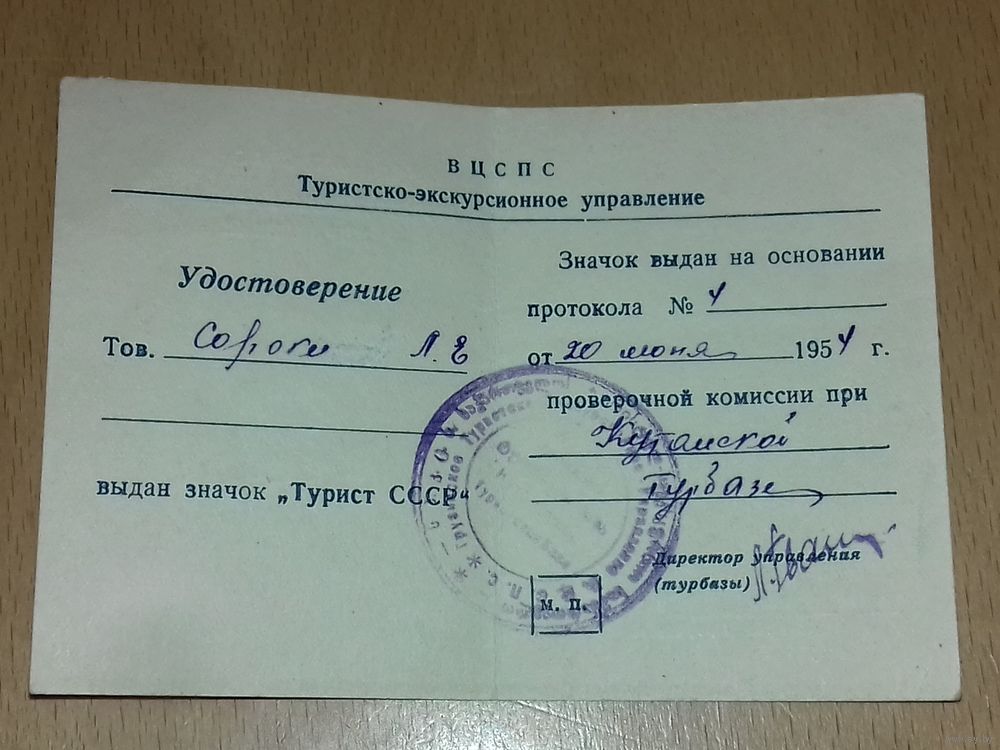 ВЦСПС
Туристско-экскурсионное управление
Удостоверение
Тов. Сороки Л. Е
выдан значок „Турист СССР“
Значок выдан на основании
протокола № 4
от 20 июня 1954 г.
проверочной комиссии при
Кутаисской
Турбазе
Директор управления
(турбазы)
М. П.